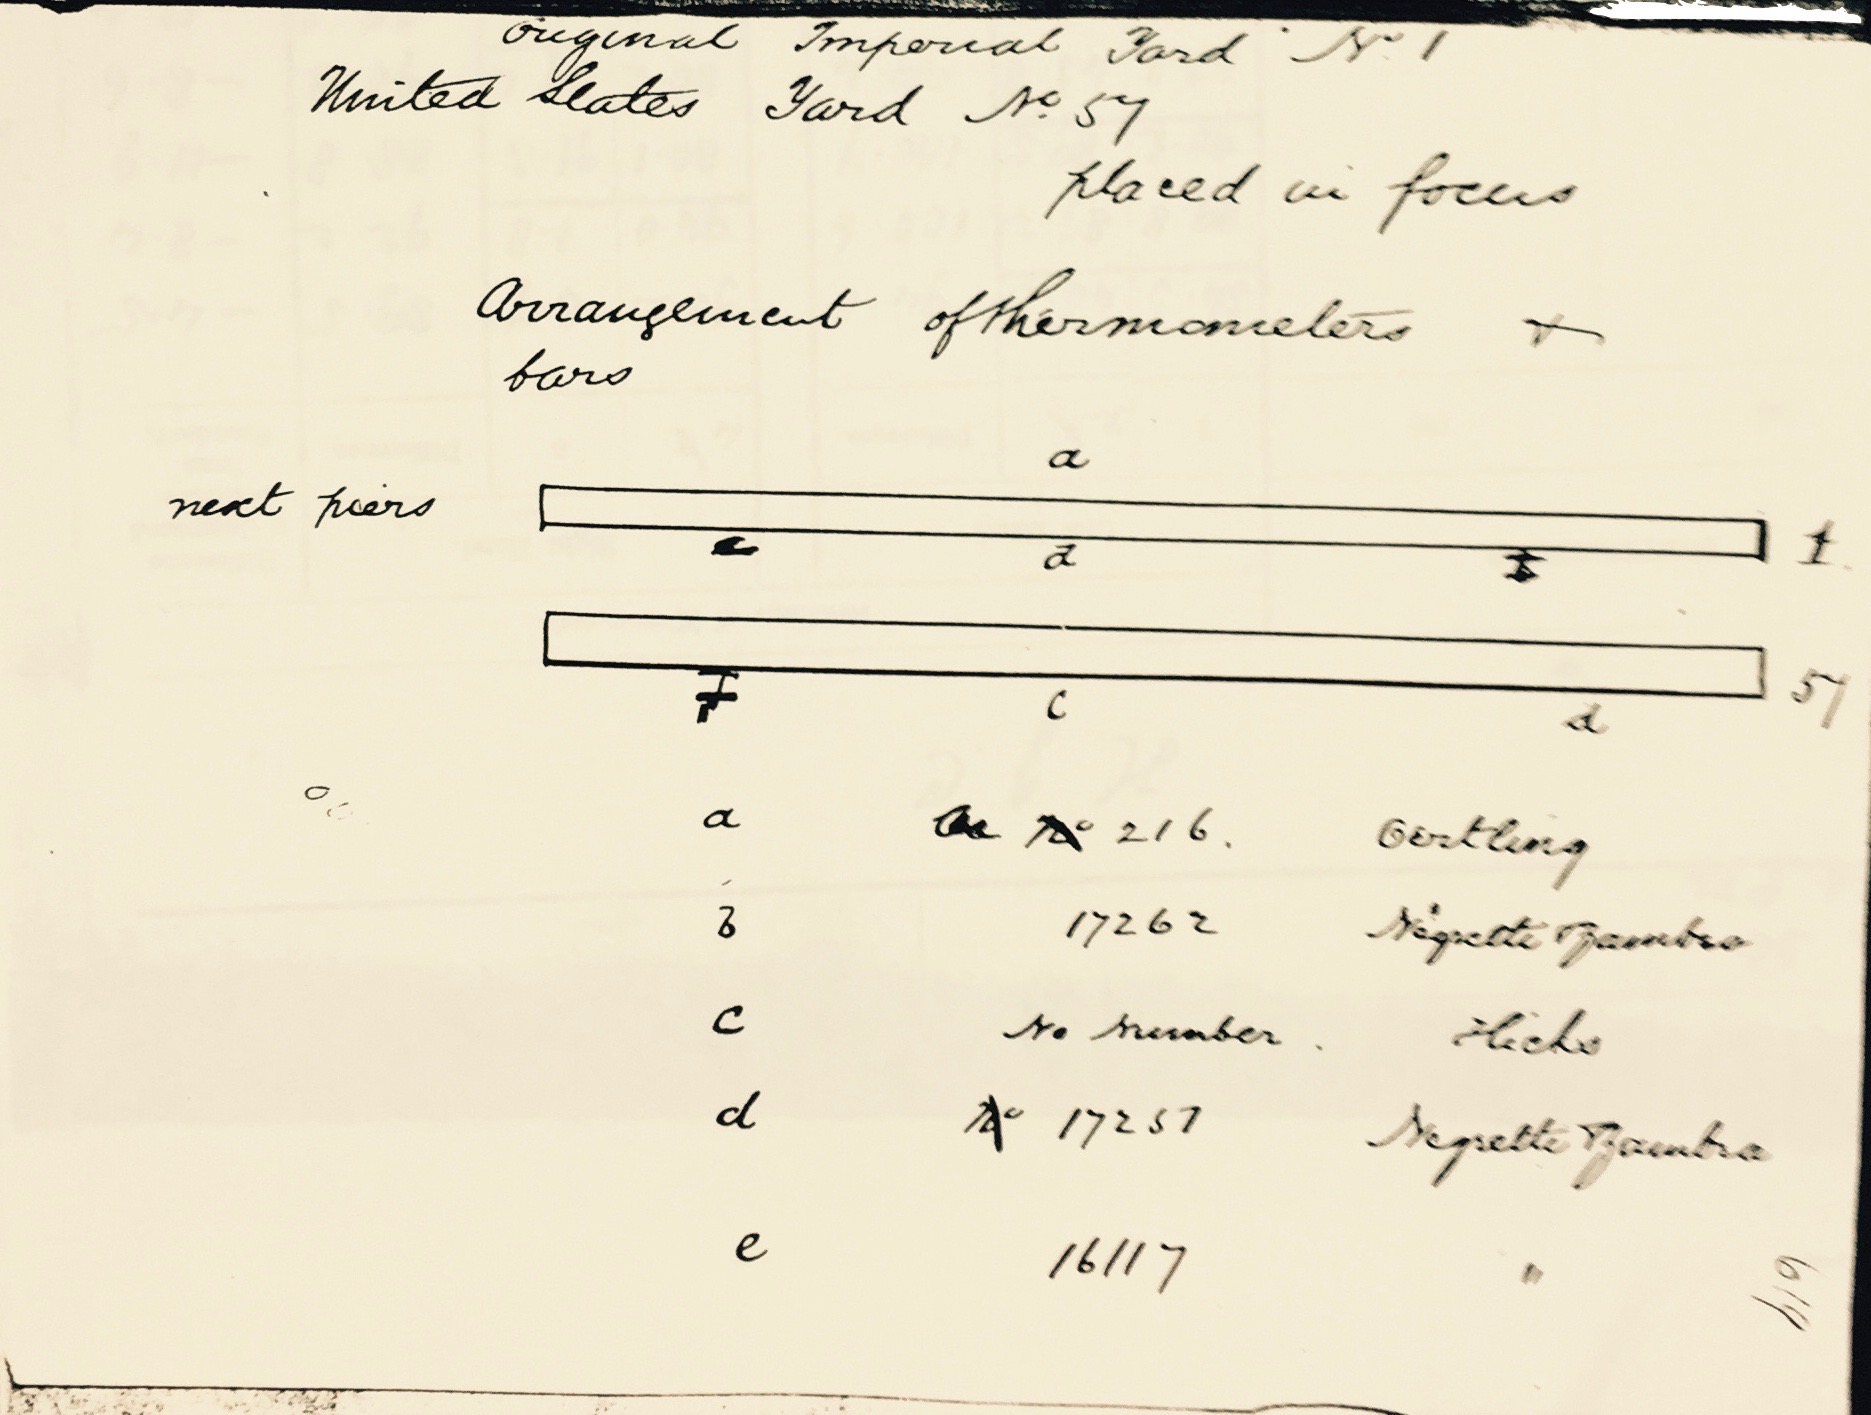 Original Imperial Yard No. 1
United States Yard No. 57
placed in focus
Arrangement of thermometers +
bars
a
next piers
1
e d
57
c d
a No 216. Oertling
b 17262 Negretti & Zambra
c No Number. Hicks
d No 17257 Negretti & Zambra
e 16117 "
619